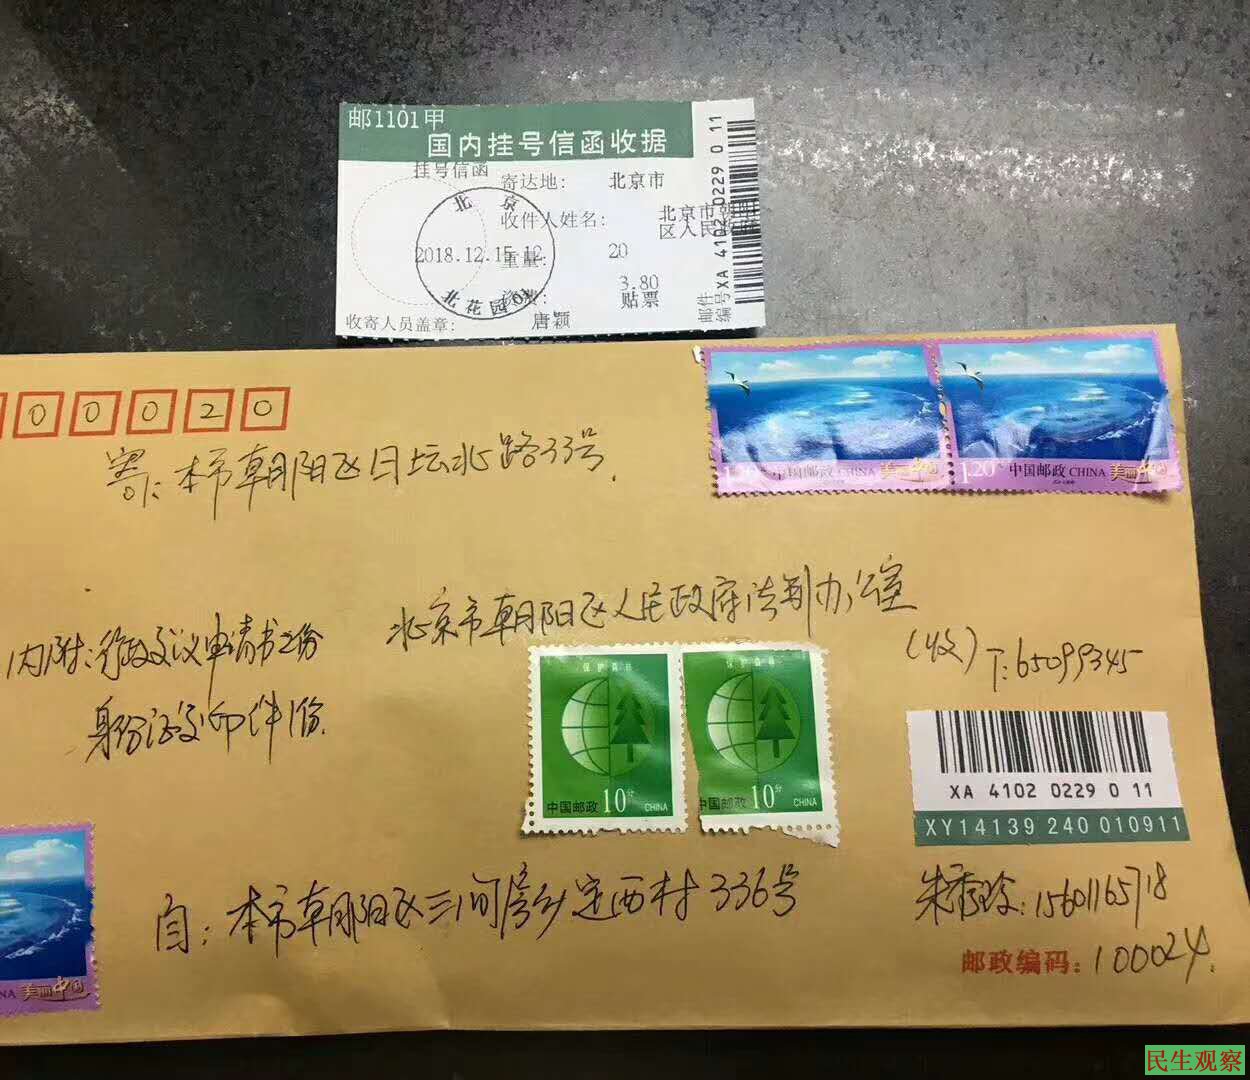 邮1101甲
国内挂号信函收据
挂号信函
寄达地: 北京市
收件人姓名: 北京市
区人民
重量: 20
3.80
贴票
收寄人员盖章: 唐颖
北京
2018.12.15.12
北花园01
邮件
编号XA 4102 0229 0 11
00020
寄:本市朝阳区日坛北路33号.
1.20 中国邮政 CHINA 美丽中国
1.20 中国邮政 CHINA 美丽中国
北京市朝阳区人民政府法制办公室
(收) T:65099345
内附:行政复议申请书2份
身份证复印件1份.
保护森林
中国邮政 10分 CHINA
保护森林
中国邮政 10分 CHINA
XA 4102 0229 0 11
XY14139 240 010911
自:本市朝阳区三间房乡定西村336号
朱秀玲:15601165718
邮政编码:100024
NA 美丽中国
民生观察